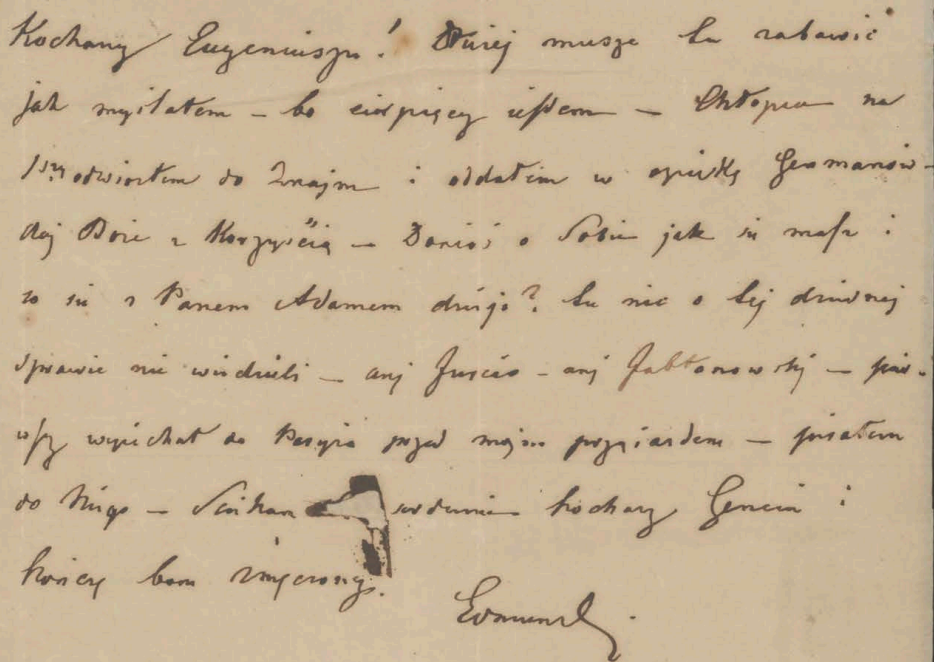 Kochany Eugeniuszu! Dłużej muszę tu zabawić
jak myślałem – bo cierpiący jestem – Chłopca na
odwiozłem do Znajm i oddałem w opiekę Germanów –
daj Boże z Korzyścią – Donieś o Sobie jak się masz i
co się z Panem Adamem dzieje? tu nic o tej dziwnej
sprawie nie wiedzieli – ani Juścio – ani Jabłonowski – pier-
wszy wyjechał do Paryża przed mojem przyjazdem – pisałem
do Niego – Ściskam serdecznie kochany Geniu i
kończę bom zmęczony.
Edmund